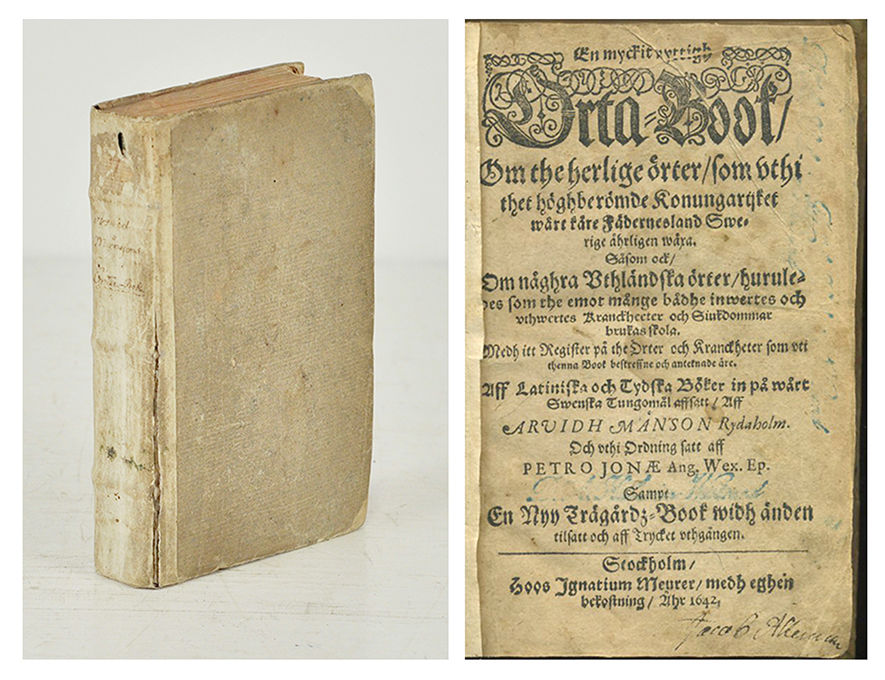 En myckit nyttigh
Örta-Book/
Om the herlige örter/som vthi
thet höghberömde Konungarijket
wårt käre Fädernesland Swe-
rige åhrligen wäxa.
Såsom ock/
Om någhra Vthländska örter/hurule-
des som the emot månge bådhe inwertes och
vthwertes Kranckheeter och Siukdommar
brukas skola.
Medh itt Register på the Örter och Kranckheter som vti
thenna Book bestreffne och antecknade äre.
Aff Latiniska och Tydska Böker in på wårt
Swenska Tungomål affsatt/Aff
ARVIDH MÅNSON Rydaholm.
Och vthi Ordning satt aff
PETRO JONÆ Ang. Wex. Ep.
Sampt
En Nyy Trägårdz-Book widh änden
tilsatt och aff Trycket vthgången.
Stockholm/
Hoos Ignatium Meurer/medh eghen
bekostning/Åhr 1642,
Jacob